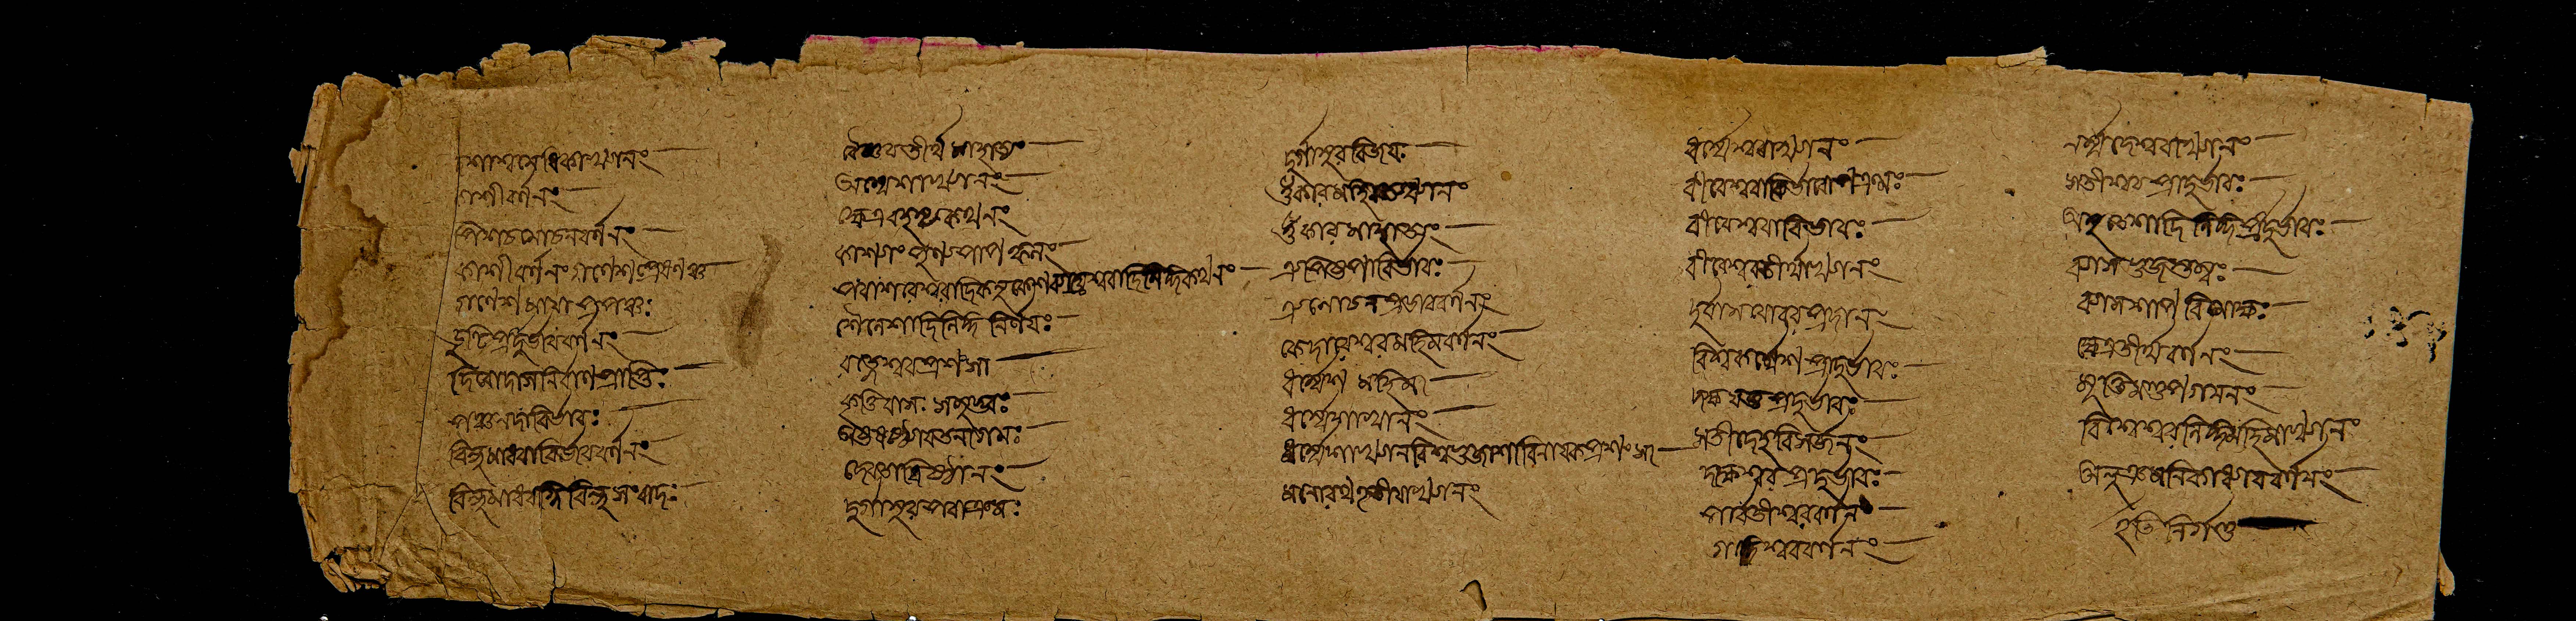 শাশ্বমেধিকাখ্যানং
কাশীবর্ণনং
পিশাচমোচনবর্ণনং
কাশীবর্ণনং গণেশপ্রেষণঞ্চ
গণেশমায়াপ্রপঞ্চঃ
ঢুণ্ঢিপ্রাদুর্ভাববর্ণনং
দিবোদাসনির্বাণপ্রাপ্তিঃ
পঞ্চনদাবির্ভাবঃ
বিন্দুমাধবাবির্ভাববর্ণনং
বিন্দুমাধবাগ্নি বিন্দুসংবাদঃ
বৈষ্ণবতীর্থ মাহাত্ম্যং
জ্যেষ্ঠেশাখ্যানং
ক্ষেত্ররহস্যকথনং
শৈলেশাদিলিঙ্গ নির্ণয়ঃ
রত্নেশ্বরপ্রশংসা
কৃত্তিবাসঃ সমুদ্ভবঃ
অষ্টষষ্ঠ্যায়তনাগমঃ
দেবতাধিষ্ঠানং
দুর্গাসুরপরাক্রমঃ
দুর্গাসুরবিজয়ঃ
ওঁকারমহিমাখ্যানং
ওঁকার মাহাত্ম্যং
ত্রিপিষ্টপাবির্ভাবঃ
ত্রিলোচনপ্রভাববর্ণনং
কেদারেশ্বরমহিমবর্ণনং
ধর্ম্মেশ মহিমা
ধর্ম্মেশাখ্যানং
ধর্ম্মেশাখ্যানবিশ্বভুজাশাবিনায়কপ্রশংসা
মনোরথতৃতীয়াখ্যানং
ধর্ম্মেশ্বরাখ্যানং
বীরেশ্বরাবির্ভাবোপক্রমঃ
বীরেশ্বরাবির্ভাবঃ
বীরেশ্বরতীর্থাখ্যানং
দুর্বাসসোবরপ্রদানং
বিশ্বকর্ম্মেশ প্রাদুর্ভাবঃ
দক্ষযজ্ঞ প্রাদুর্ভাবঃ
সতীদেহবিসর্জনং
দক্ষেশ্বর প্রাদুর্ভাবঃ
পার্বতীশ্বরবর্ণনং
গঙ্গেশ্বরবর্ণনং
নর্ম্মদেশ্বরাখ্যানং
সতীশ্বর প্রাদুর্ভাবঃ
অমৃতেশাদি লিঙ্গপ্রাদুর্ভাবঃ
ব্যাসভুজস্তম্ভঃ
ব্যাসশাপ বিমোক্ষঃ
ক্ষেত্রতীর্থবর্ণনং
মুক্তিমণ্ডপগমনং
বিশ্বেশ্বরলিঙ্গমহিমাখ্যানং
অনুক্রমণিকাধ্যায়বর্ণনং
ইতি নির্ঘণ্ট